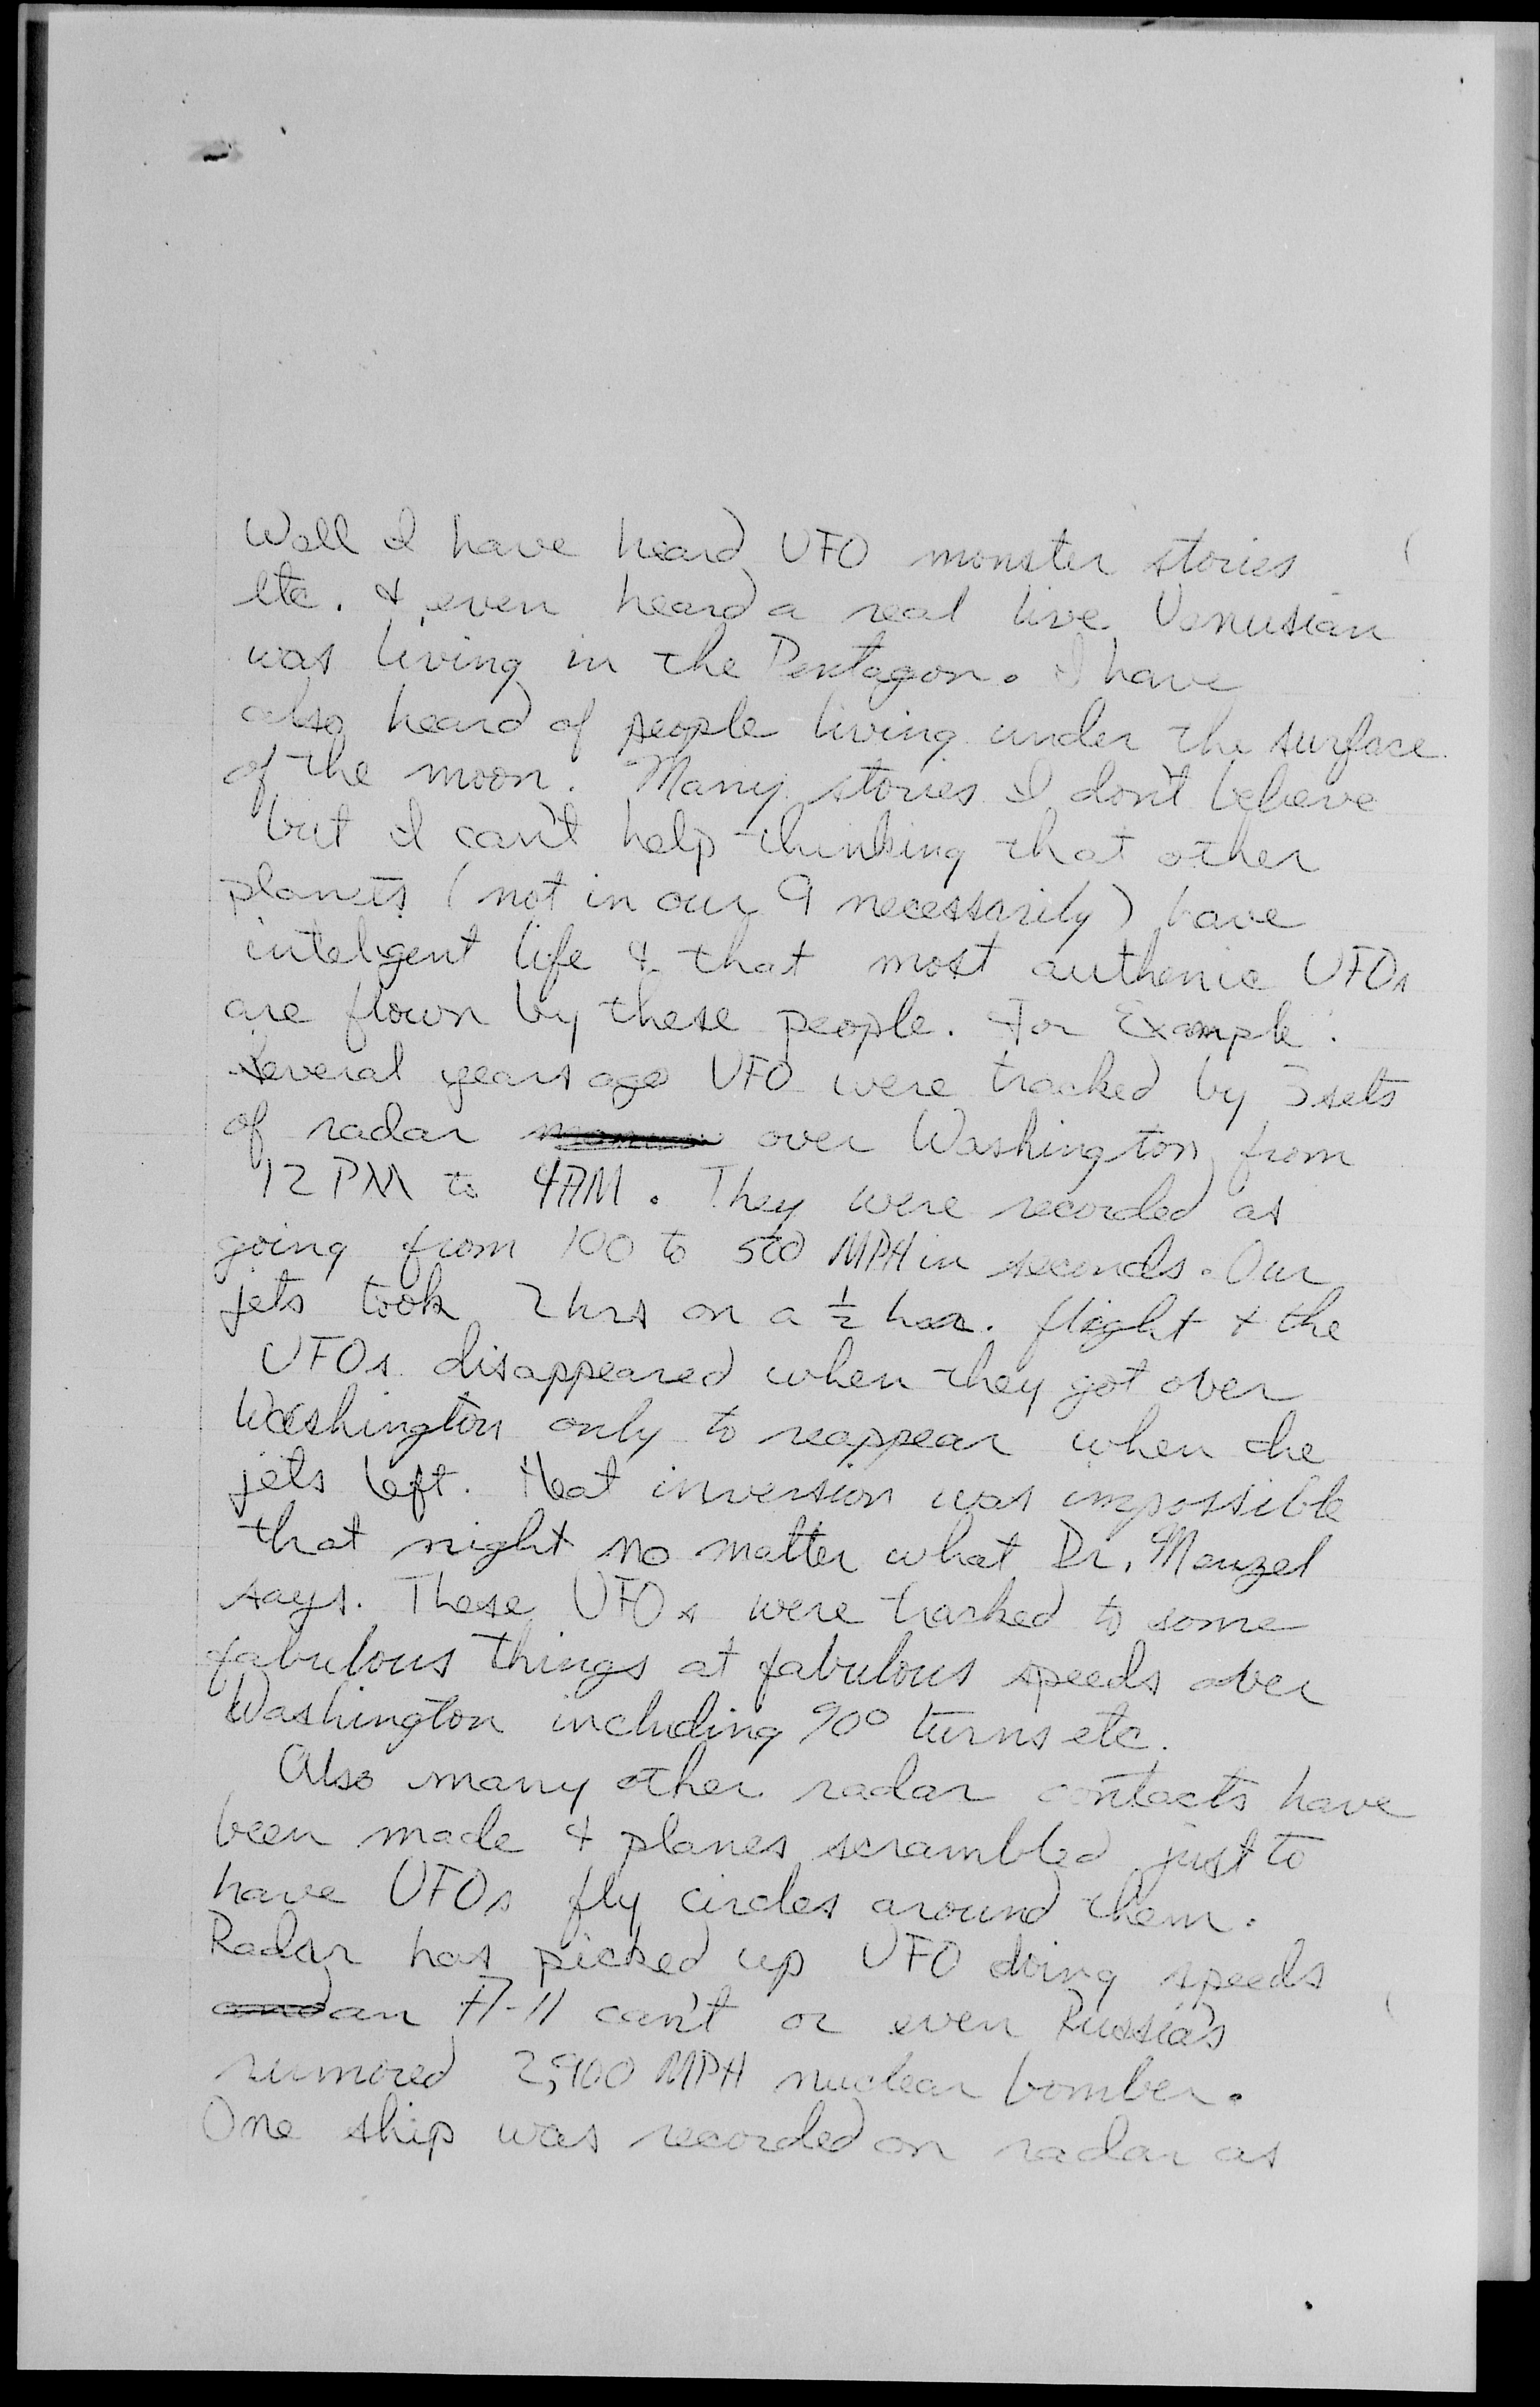 Well I have heard UFO monster stories
etc. & even heard a real live Venusian
was living in the Pentagon. I have
also heard of people living under the surface
of the moon. Many stories I don't believe
but I can't help thinking that other
planets (not in our 9 necessarily) have
inteligent life & that most authenic UFOs
are flown by these people. For Example:
Several years ago UFO were tracked by 3 sets
of radar over Washington from
12 PM to 4AM. They were recorded as
going from 100 to 500 MPH in seconds. Our
jets took 2 hrs on a ½ hr. flight & the
UFOs disappeared when they got over
Washington only to reappear when the
jets left. Heat inversion was impossible
that night no matter what Dr. Menzel
says. These UFOs were tracked to some
fabulous things at fabulous speeds over
Washington including 90° turns etc.
Also many other radar contacts have
been made & planes scrambled just to
have UFOs fly circles around them.
Radar has picked up UFO doing speeds
an A-11 can't or even Russia's
rumored 2,900 MPH nuclear bomber.
One ship was recorded on radar as